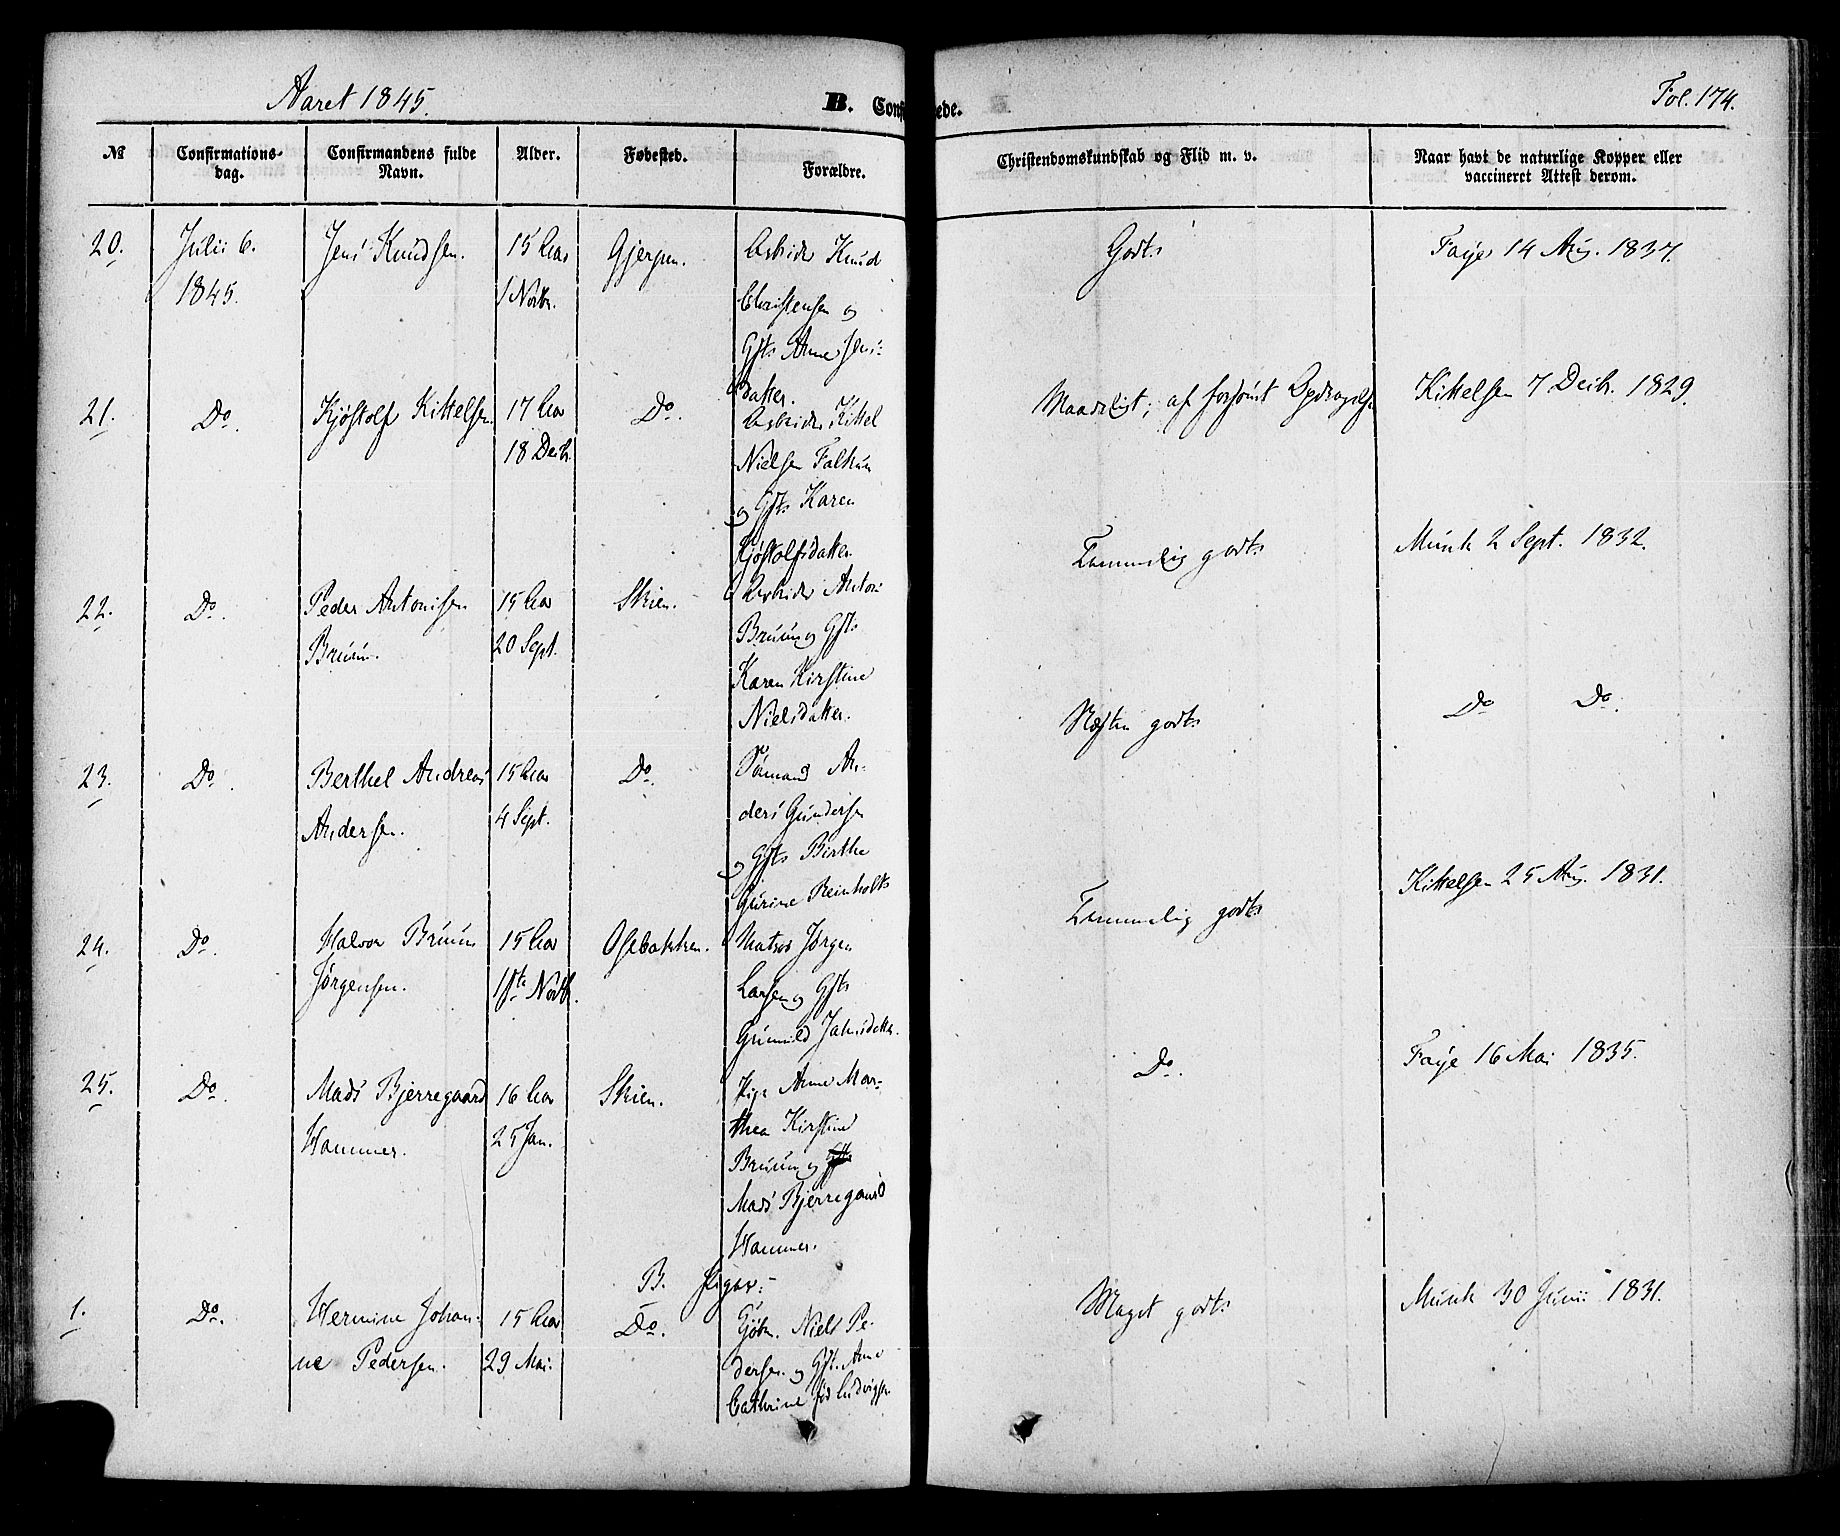 Aaret 1845.
B. Conf
ede.
Fol. 174.
№
Confirmations-
dag.
Confirmandens fulde
Navn.
Alder.
Fødested.
Forældre.
Christendomskundskab og Flid m. v.
Naar havt de naturlige Kopper eller
vaccineret Attest derom.
20.
Julii 6.
1845.
Jens Knudsen.
15 Aar
1 Novbr.
Gjerpen.
Arbeider Knud
Christensen og
Gft. Anne Jens-
datter.
Godt
Faye 14 Aug. 1837.
21.
Do.
Kjøstolf Kittelsen
17 Aar
18 Decbr.
Do.
Arbeider Kittel
Nielsen Falkum
og Gft. Karen
Kjøstolfsdatter
Maadeligt, af forsømt Opdragelse
Kittelsen 7 Decbr. 1829.
22.
Do.
Peder Antonisen
Bruun.
15 Aar
20 Sept.
Skien.
Arbeider Anton
Bruun og Gft.
Karen Kirstine
Nielsdatter.
Temmelig godt
Munk 2 Sept. 1832.
23.
Do.
Berthel Andreas
Andersen.
15 Aar
4 Sept.
Do.
Sømand An-
ders Gundersen
og Gft. Birthe
Gurine Reinholt
Næsten godt
Do Do.
24.
Do.
Halvor Bruun
Jørgensen.
15 Aar
1ste Novb.
Osebakken.
Matros Jørgen
Larsen og Gft.
Gunnild Jahnsdatter.
Temmelig godt
Kittelsen 25 Aug. 1831.
25.
Do.
Mads Bjerregaard
Hammer.
16 Aar
25 Jan.
Skien.
Pige Anne Mar-
thea Kirstine
Bruun og
Mads Bjerregaard
Hammer.
Do.
Faye 16 Mai 1835.
B. Piger:
1.
Do.
Hermine Johan-
ne Pedersen.
15 Aar
29 Mai.
Do.
Kjøbm. Niels Pe-
dersen og Gft. Anne
Cathrine fød Ludvigsen
Meget godt
Munk 30 Junii 1831.